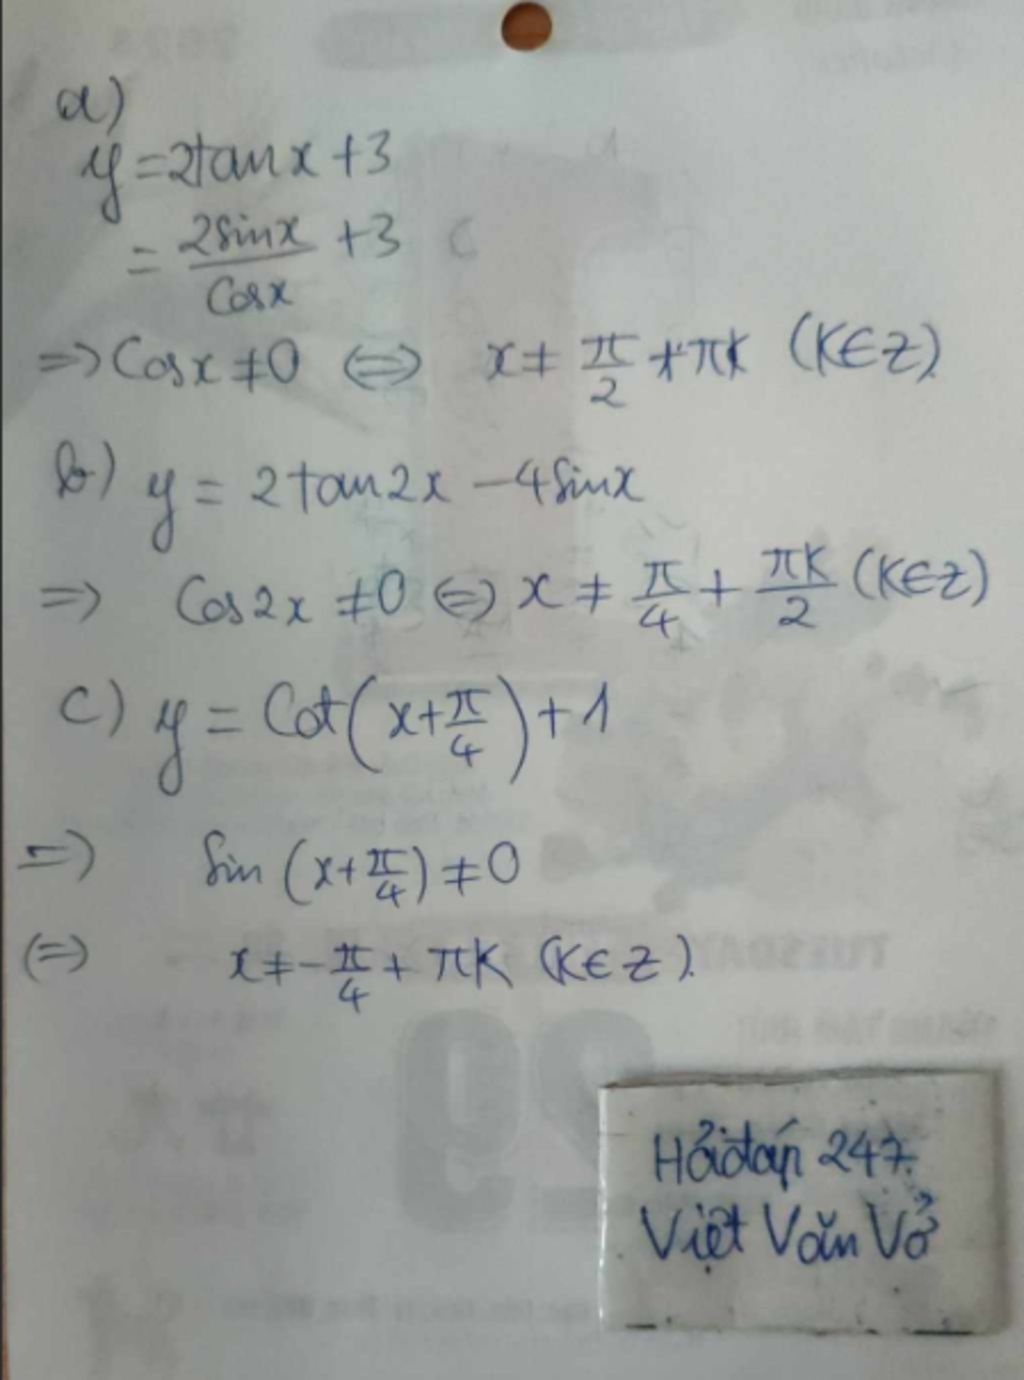 a)
y = 2tanx + 3
= 2sinx/cosx + 3
=> Cosx ≠ 0 <=> x ≠ π/2 + πK (K∈Z)
b) y = 2tan2x - 4sinx
=> Cos2x ≠ 0 <=> x ≠ π/4 + πK/2 (K∈Z)
c) y = Cot(x+π/4) + 1
=> Sin (x+π/4) ≠ 0
<=> x ≠ -π/4 + πK (K∈Z).
TUESDAY
29
Hỏiđáp 247.
Việt Văn Vở